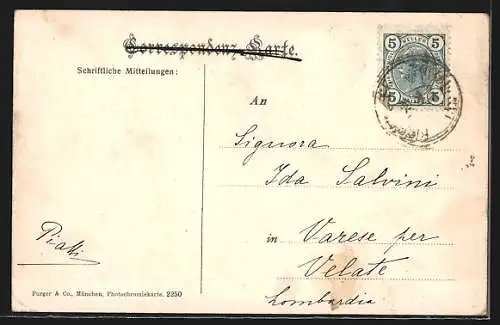 Correspondenz-Karte.
Schriftliche Mitteilungen:
5 5
5 5
An
Signora
Ida Salvini
in Varese per
Velate
Lombardia
Piatti
Purger & Co., München, Photochromiekarte. 2250